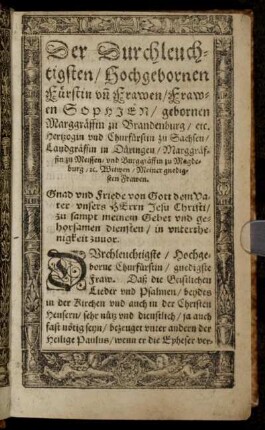 Der Durchleuch-
tigsten / Hochgebornen
Fürstin vñ Frawen / Fraw-
en SOPHIEN / gebornen
Marggräffin zu Brandenburg / etc.
Hertzogin vnd Churfürstin zu Sachsen /
Landgräffin in Düringen / Marggräf-
fin zu Meissen / vnd Burggräffin zu Magde-
burg / ꝛc. Witwen / Meiner gnedig-
sten Frawen.
Gnad vnd Friede von Gott dem Va-
ter vnsers HErrn Jesu Christi /
zu sampt meinem Gebet vnd ge-
horsamen diensten / in vnterthe-
nigkeit zuuor.
DVrchleuchtigste / Hochge-
borne Churfürstin / gnedigste
Fraw. Daß die Geistlichen
Lieder vnd Psalmen / beydes
in der Kirchen vnd auch in der Christen
Heusern / sehr nütz vnd dienstlich / ja auch
fast nötig seyn / bezeuget vnter andern der
Heilige Paulus / wenn er die Epheser ver-